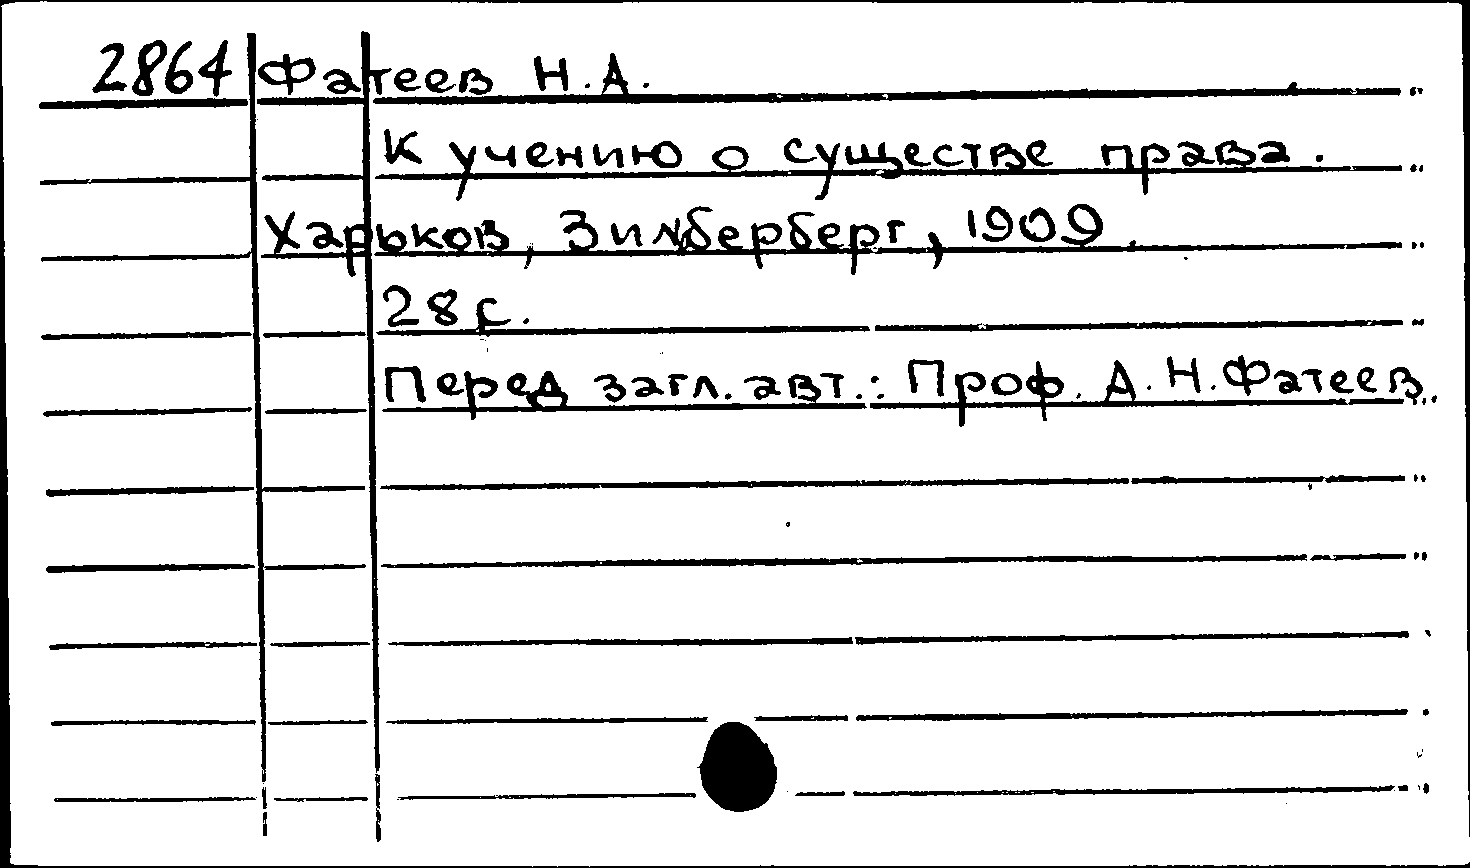 2864 Фатеев Н.А.
К учению о существе права.
Харьков, Зилберберг, 1909.
28 с.
Перед загл. авт.: Проф. А.Н.Фатеев.